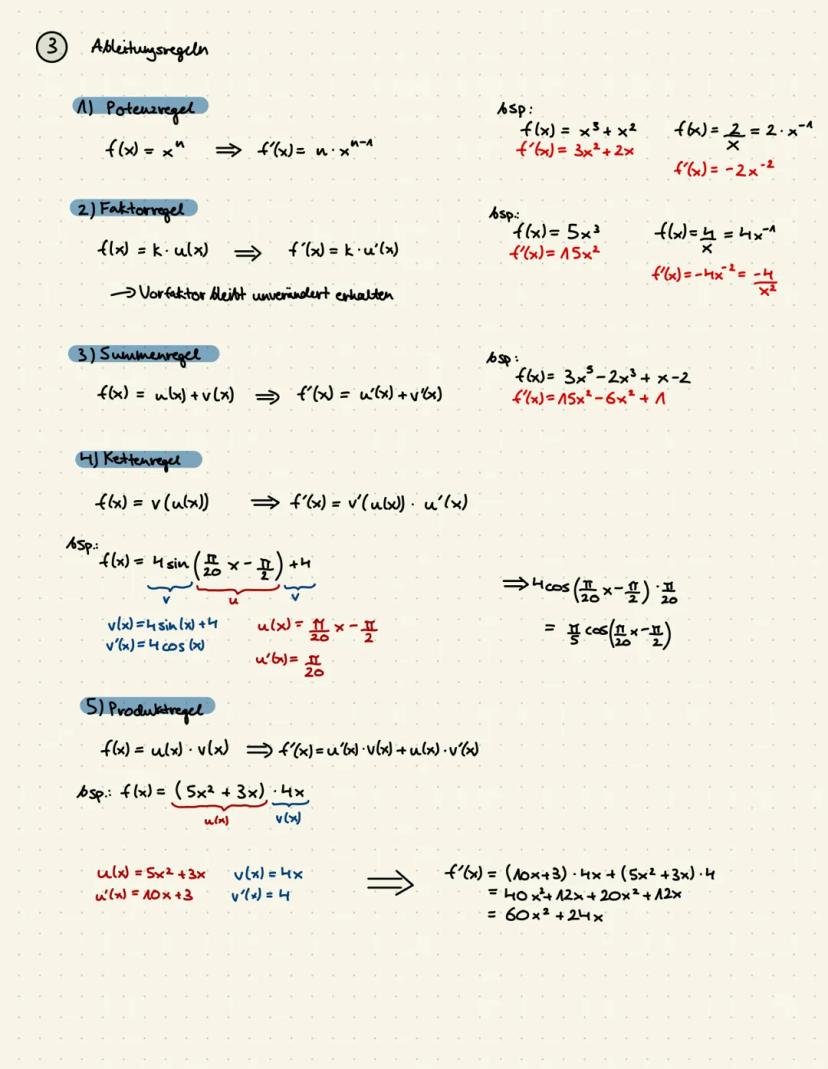 3 Ableitungsregeln
1) Potenzregel
f(x) = xⁿ ⟹ f'(x) = n · xⁿ⁻¹
bsp:
f(x) = x³ + x² f(x) = 2/x = 2 · x⁻¹
f'(x) = 3x² + 2x f'(x) = -2x⁻²
2) Faktorregel
f(x) = k · u(x) ⟹ f'(x) = k · u'(x)
→ Vorfaktor bleibt unverändert erhalten
bsp.:
f(x) = 5x³ f(x) = 4/x = 4x⁻¹
f'(x) = 15x² f'(x) = -4x⁻² = -4/x²
3) Summenregel
f(x) = u(x) + v(x) ⟹ f'(x) = u'(x) + v'(x)
bsp:
f(x) = 3x⁵ - 2x³ + x - 2
f'(x) = 15x² - 6x² + 1
4) Kettenregel
f(x) = v(u(x)) ⟹ f'(x) = v'(u(x)) · u'(x)
bsp.:
f(x) = 4 sin (π/20 x - π/2) + 4
v u v
v(x) = 4 sin(x) + 4 u(x) = π/20 x - π/2
v'(x) = 4 cos(x) u'(x) = π/20
⟹ 4 cos (π/20 x - π/2) · π/20
= π/5 cos (π/20 x - π/2)
5) Produktregel
f(x) = u(x) · v(x) ⟹ f'(x) = u'(x) · v(x) + u(x) · v'(x)
bsp.: f(x) = (5x² + 3x) · 4x
u(x) v(x)
u(x) = 5x² + 3x v(x) = 4x
u'(x) = 10x + 3 v'(x) = 4
⟹ f'(x) = (10x + 3) · 4x + (5x² + 3x) · 4
= 40x² + 12x + 20x² + 12x
= 60x² + 24x